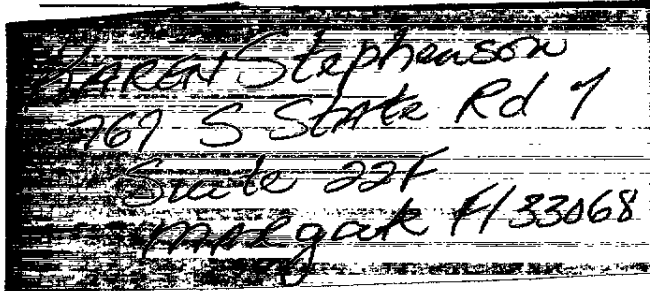 KAREN Stephenson
767 S State Rd 7
Suite 22F
MARgate Fl 33068